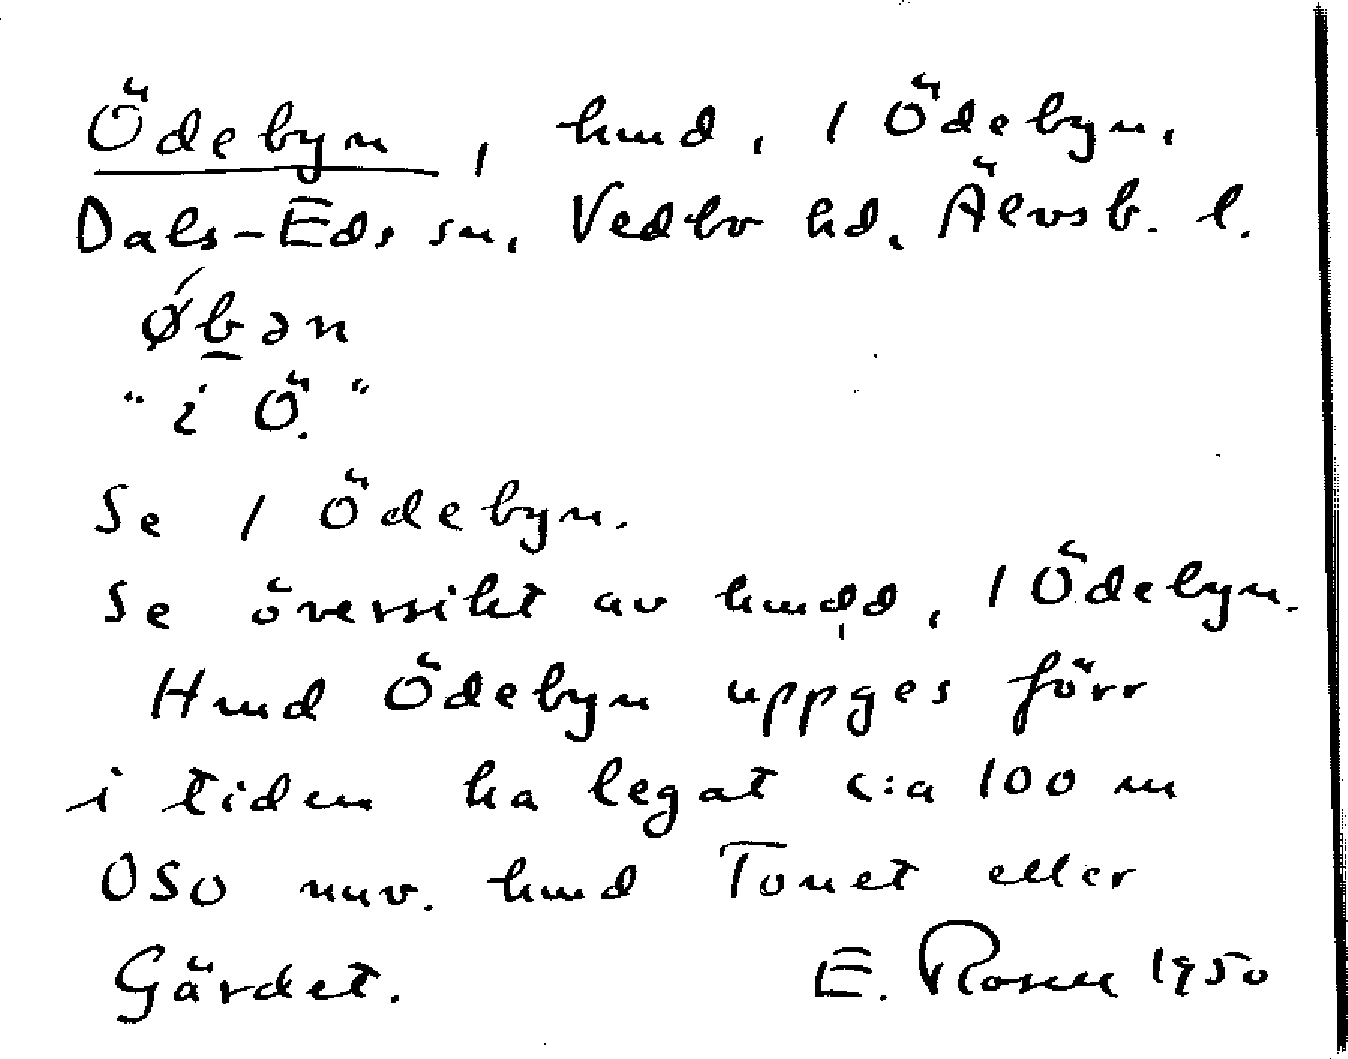 Ödebyn, hmd, 1 Ödebyn,
Dals-Eds sn, Vedbo hd, Älvsb. l.
ǿbən
"i Ö."
Se 1 Ödebyn.
Se översikt av hmdd, 1 Ödebyn.
Hmd Ödebyn uppges förr
i tiden ha legat c:a 100 m
OSO nuv. hmd Tomet eller
Gärdet. E. Rosell 1950